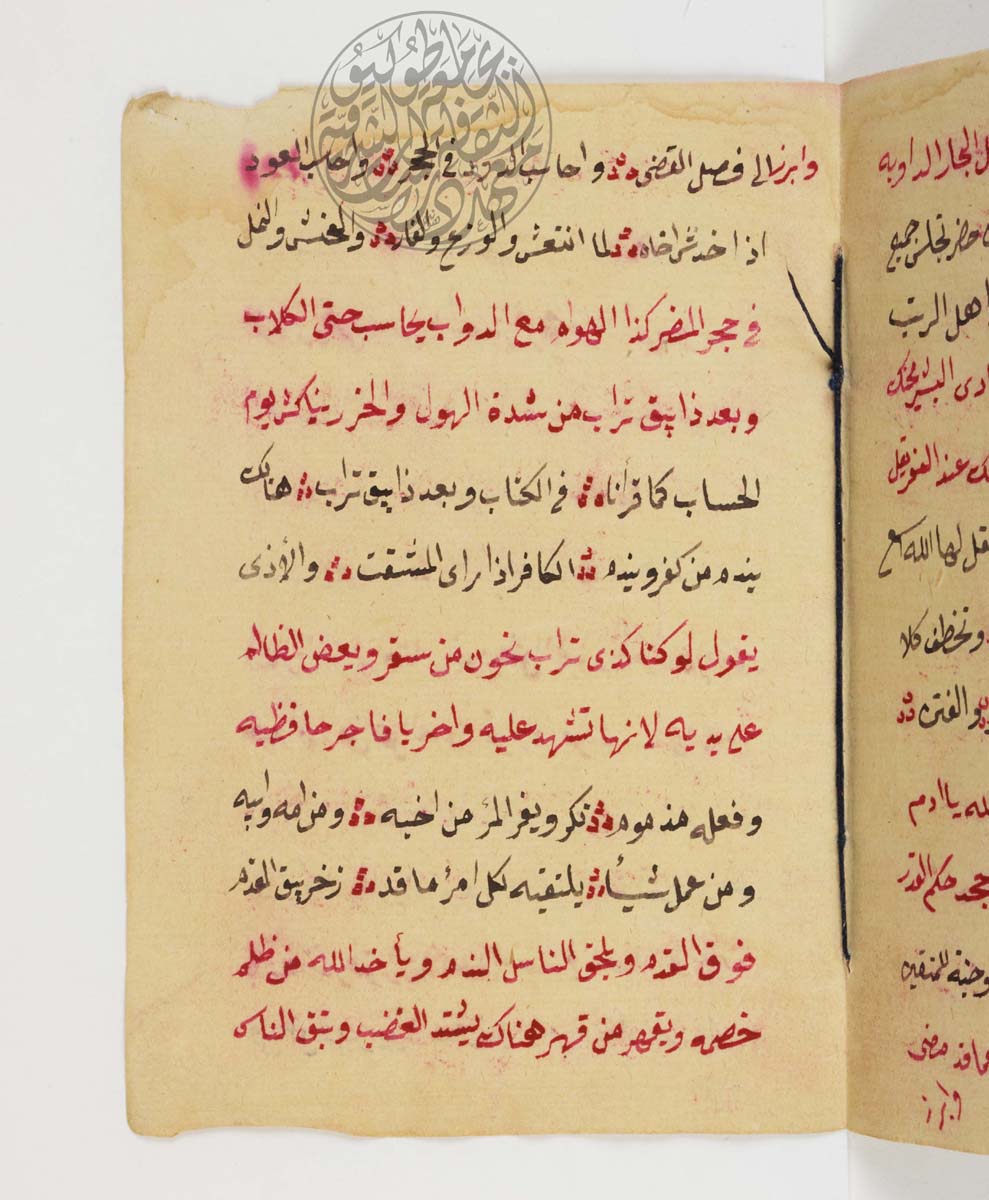 وابرزالى فصل القضى وحاسب الدود في الحجر وحاسب العود
اذا خدش اخاه لما انتعش والوزغ والفار والحنش والنمل
في حجر المضر كذا الهوام مع الدواب يحاسب حتى الكلاب
وبعد ذا يبق تراب من شدة الهول والخزر يناكثر يوم
الحساب كما قرأنا في الكتاب وبعد ذا يبق تراب هناك
يندم من كفر ويندم الكافر اذا راى المشقت والأذى
يقول لو كنا كذى تراب نخون من سقر ويعض الظالم
على يديه لانها تشهد عليه واخر يا فاجر حافظيه
وفعله مذموم نكر ويفر المرأ من اخيه ومن امه وابيه
ومن عمل شيأ يلتقيه لكل امرأ ما قد زخر يبق القدم
فوق القدم ويلحق الناس الندم ويأخد الله من ظلم
خصمه ويقهر من قهر هناك يشتد الغضب وتبق الناس
ل الجار الداويه
حضر تجلس جميع
اهل الريب
ادى البشير
عند الفريق
قل لها الله
وتخطف كلا
والفتن
يا ادم
جحد حكم القدر
وجنة للمتقين
ما قد مضى
وابرز